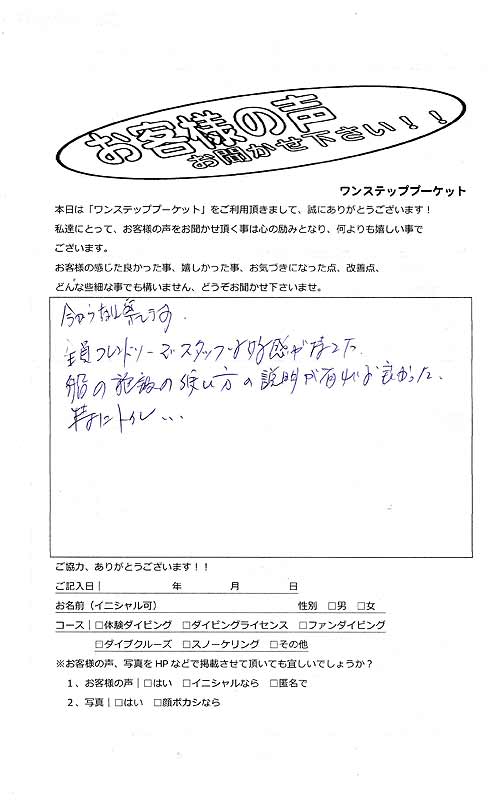 お客様の声
お聞かせ下さい！！
ワンステッププーケット
本日は「ワンステッププーケット」をご利用頂きまして、誠にありがとうございます！
私達にとって、お客様の声をお聞かせ頂く事は心の励みとなり、何よりも嬉しい事で
ございます。
お客様の感じた良かった事、嬉しかった事、お気づきになった点、改善点、
どんな些細な事でも構いません、どうぞお聞かせ下さいませ。
全員フレンドリーでスタッフは好感がもてた
船の施設の使い方の説明が有れば良かった、
特にトイレ・・・
ご協力、ありがとうございます！！
ご記入日｜ 年 月 日
お名前（イニシャル可） 性別 □男 □女
コース｜□体験ダイビング □ダイビングライセンス □ファンダイビング
□ダイブクルーズ □スノーケリング □その他
※お客様の声、写真を HP などで掲載させて頂いても宜しいでしょうか？
１、お客様の声｜□はい □イニシャルなら □匿名で
２、写真｜□はい □顔ボカシなら